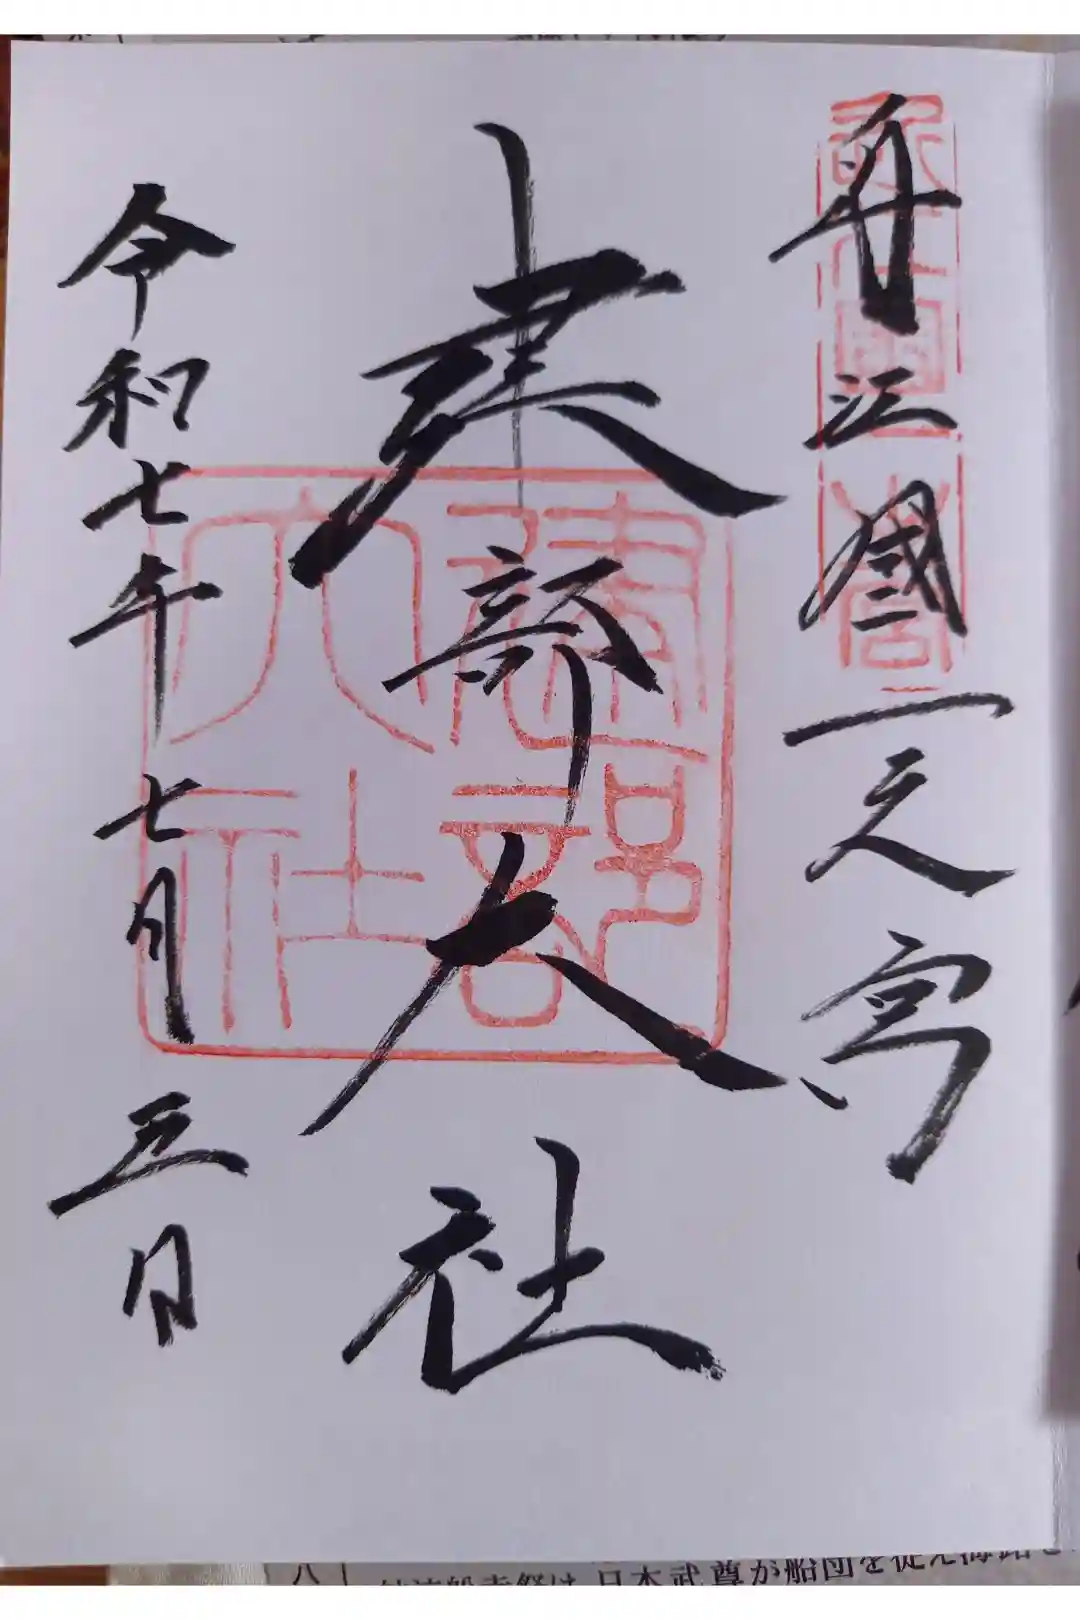 近江國一之宮
建部大社
令和七年七月三日
建部大社
日本武尊が船団を従え海路